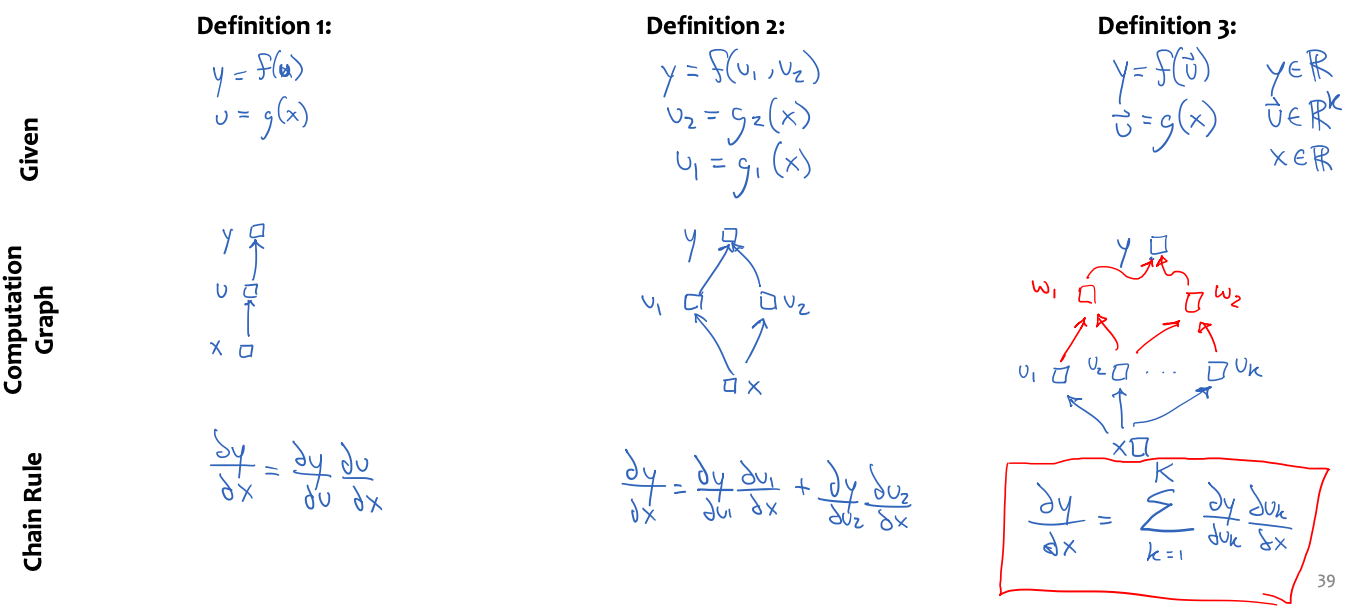 Definition 1:
Definition 2:
Definition 3:
Given
y = f(u)
u = g(x)
y = f(u₁, u₂)
u₂ = g₂(x)
u₁ = g₁(x)
y = f(u⃗) y ∈ ℝ
u⃗ = g(x) u⃗ ∈ ℝᵏ
x ∈ ℝ
Computation
Graph
y
u
x
y
u₁ u₂
x
y
w₁ w₂
u₁ u₂ ... uₖ
x
Chain Rule
∂y/∂x = ∂y/∂u ∂u/∂x
∂y/∂x = ∂y/∂u₁ ∂u₁/∂x + ∂y/∂u₂ ∂u₂/∂x
∂y/∂x = Σ_{k=1}^{K} ∂y/∂uₖ ∂uₖ/∂x
39